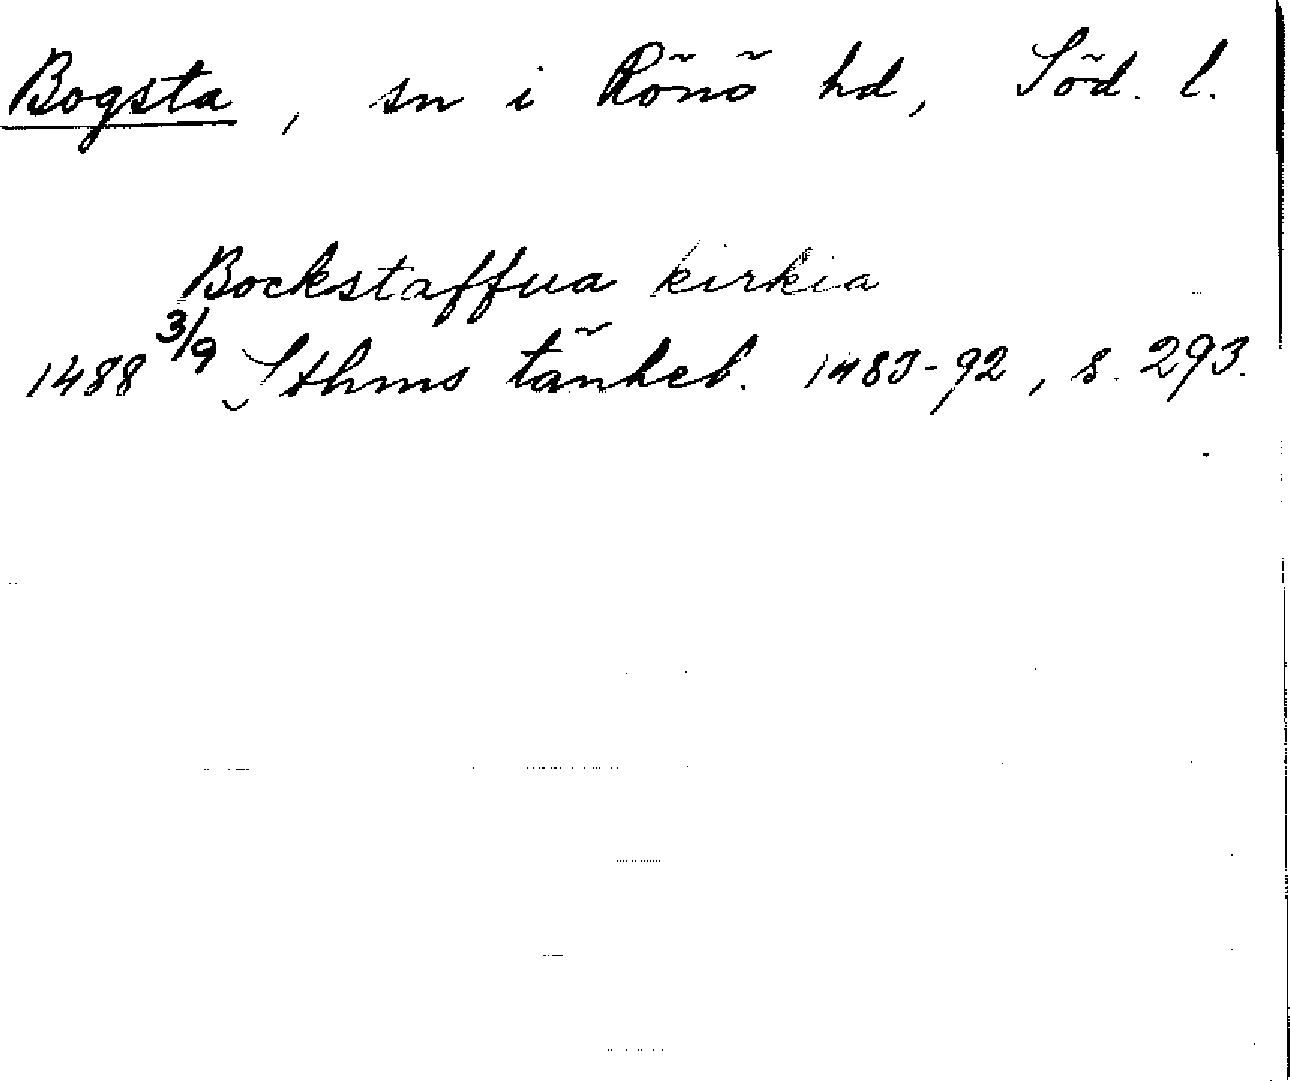 Bogsta, sn i Rönö hd, Söd. l.
Bockstaffua kirkia
1488 3/9 Sthms tänkeb. 1483-92, s. 293.